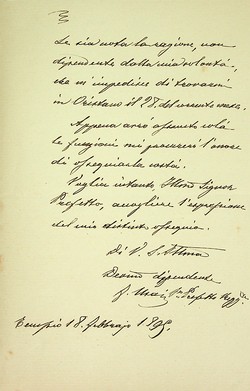 Le sia nota la ragione, non
dipendente dalla mia volontà,
che m'impedisce di trovarmi
in Oristano il 27 del corrente mese.
Appena avrò assunte colà
le funzioni mi procurerò l'onore
di ossequiarla
Voglia intanto, Illmo Signor
Prefetto, accogliere l'espressione
del mio distinto ossequio.
Di V. S. Illma
Devmo dipendente
Prefetto
Tempio 18 febbrajo 1895